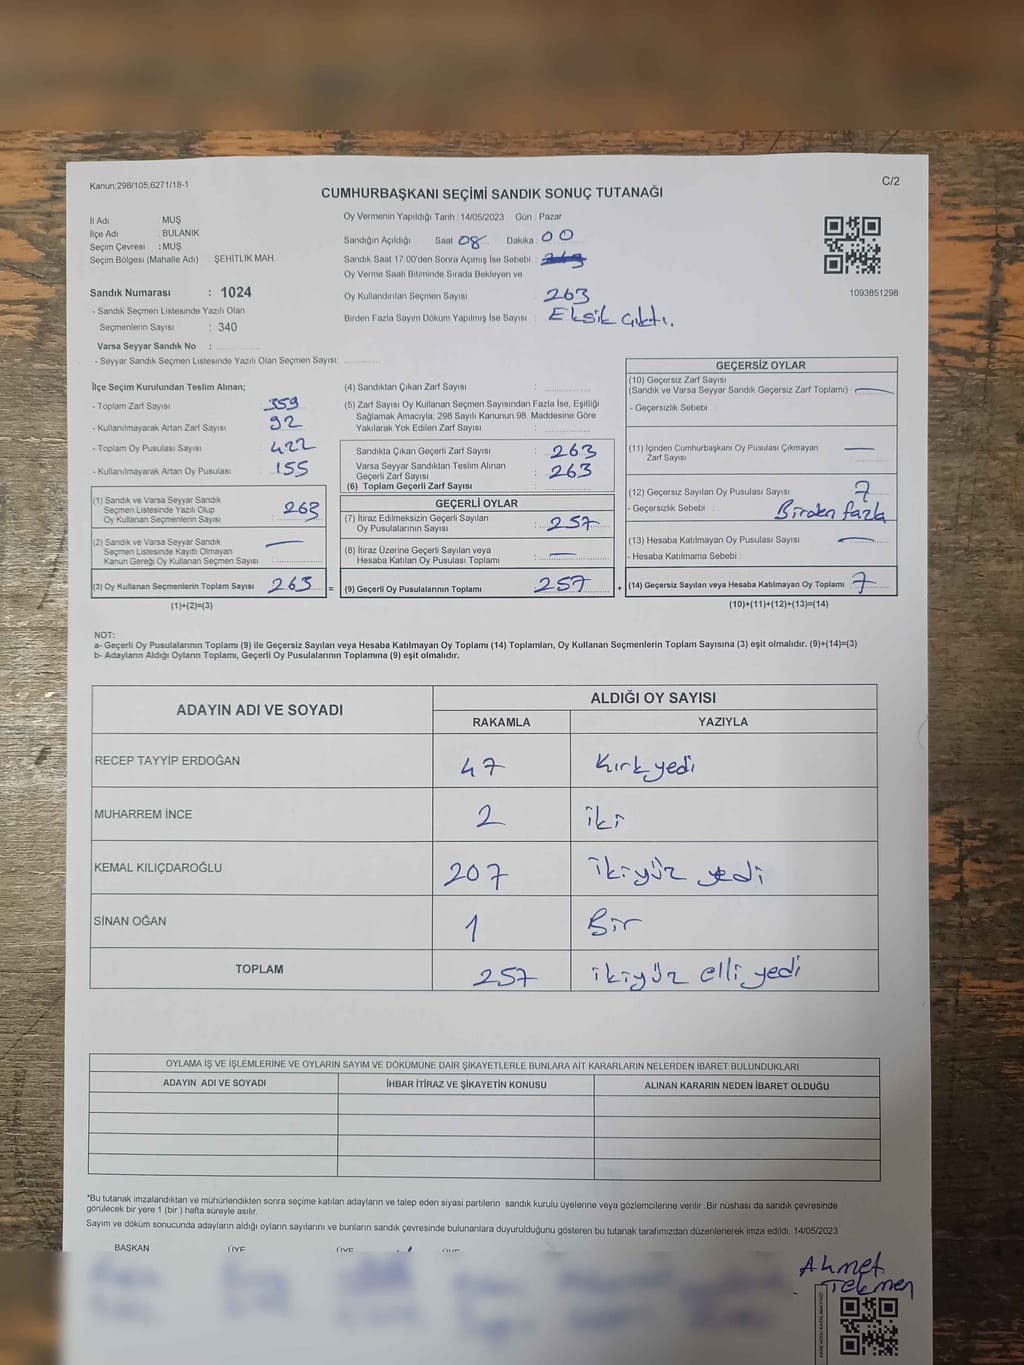 Kanun;298/105,6271/18-1
C/2
CUMHURBAŞKANI SEÇİMİ SANDIK SONUÇ TUTANAĞI
İl Adı MUŞ
İlçe Adı : BULANIK
Seçim Çevresi : MUŞ
Seçim Bölgesi (Mahalle Adı) . ŞEHİTLİK MAH.
Sandık Numarası : 1024
- Sandık Seçmen Listesinde Yazılı Olan
Seçmenlerin Sayısı : 340
Varsa Seyyar Sandık No :
- Seyyar Sandık Seçmen Listesinde Yazılı Olan Seçmen Sayısı:
Oy Vermenin Yapıldığı Tarih : 14/05/2023 Gün : Pazar
Sandığın Açıldığı Saat 08 Dakika : 00
Sandık Saat 17.00'den Sonra Açımış İse Sebebi :
Oy Verme Saati Bitiminde Sırada Bekleyen ve
Oy Kullandırılan Seçmen Sayısı 263
Birden Fazla Sayım Döküm Yapılmış İse Sayısı : Eksik çıktı.
1093851298
İlçe Seçim Kurulundan Teslim Alınan;
- Toplam Zarf Sayısı 359
- Kullanılmayarak Artan Zarf Sayısı 92
- Toplam Oy Pusulası Sayısı 422
- Kullanılmayarak Artan Oy Pusulası 155
(1) Sandık ve Varsa Seyyar Sandık
Seçmen Listesinde Yazılı Olup
Oy Kullanan Seçmenlerin Sayısı : 263
(2) Sandık ve Varsa Seyyar Sandık
Seçmen Listesinde Kayıtlı Olmayan
Kanun Gereği Oy Kullanan Seçmen Sayısı : —
(3) Oy Kullanan Seçmenlerin Toplam Sayısı 263 =
(1)+(2)=(3)
(4) Sandıktan Çıkan Zarf Sayısı :
(5) Zarf Sayısı Oy Kullanan Seçmen Sayısından Fazla İse, Eşitliği
Sağlamak Amacıyla, 298 Sayılı Kanunun 98. Maddesine Göre
Yakılarak Yok Edilen Zarf Sayısı :
Sandıkta Çıkan Geçerli Zarf Sayısı : 263
Varsa Seyyar Sandıktan Teslim Alınan
Geçerli Zarf Sayısı : 263
(6) Toplam Geçerli Zarf Sayısı :
GEÇERLİ OYLAR
(7) İtiraz Edilmeksizin Geçerli Sayılan
Oy Pusulalarının Sayısı : 257
(8) İtiraz Üzerine Geçerli Sayılan veya
Hesaba Katılan Oy Pusulası Toplamı : —
(9) Geçerli Oy Pusulalarının Toplamı 257 +
GEÇERSİZ OYLAR
(10) Geçersiz Zarf Sayısı
(Sandık ve Varsa Seyyar Sandık Geçersiz Zarf Toplamı) : —
- Geçersizlik Sebebi
(11) İçinden Cumhurbaşkanı Oy Pusulası Çıkmayan
Zarf Sayısı —
(12) Geçersiz Sayılan Oy Pusulası Sayısı : 7
- Geçersizlik Sebebi : Birden fazla
(13) Hesaba Katılmayan Oy Pusulası Sayısı : —
- Hesaba Katılmama Sebebi :
(14) Geçersiz Sayılan veya Hesaba Katılmayan Oy Toplamı 7
(10)+(11)+(12)+(13)=(14)
NOT:
a- Geçerli Oy Pusulalarının Toplamı (9) ile Geçersiz Sayılan veya Hesaba Katılmayan Oy Toplamı (14) Toplamları, Oy Kullanan Seçmenlerin Toplam Sayısına (3) eşit olmalıdır. (9)+(14)=(3)
b- Adayların Aldığı Oyların Toplamı, Geçerli Oy Pusulalarının Toplamına (9) eşit olmalıdır.
ADAYIN ADI VE SOYADI
ALDIĞI OY SAYISI
RAKAMLA YAZIYLA
RECEP TAYYİP ERDOĞAN 47 Kırkyedi
MUHARREM İNCE 2 iki
KEMAL KILIÇDAROĞLU 207 ikiyüz yedi
SİNAN OĞAN 1 Bir
TOPLAM 257 ikiyüz elli yedi
OYLAMA İŞ VE İŞLEMLERİNE VE OYLARIN SAYIM VE DÖKÜMÜNE DAİR ŞİKAYETLERLE BUNLARA AİT KARARLARIN NELERDEN İBARET BULUNDUKLARI
ADAYIN ADI VE SOYADI İHBAR İTİRAZ VE ŞİKAYETİN KONUSU ALINAN KARARIN NEDEN İBARET OLDUĞU
*Bu tutanak imzalandıktan ve mühürlendikten sonra seçime katılan adayların ve talep eden siyasi partilerin sandık kurulu üyelerine veya gözlemcilerine verilir .Bir nüshası da sandık çevresinde
görülecek bir yere 1 (bir ) hafta süreyle asılır.
Sayım ve döküm sonucunda adayların aldığı oyların sayılarını ve bunların sandık çevresinde bulunanlara duyurulduğunu gösteren bu tutanak tarafımızdan düzenlenerek imza edildi. 14/05/2023
BAŞKAN ÜYE ÜYE ÜYE
Ahmet
Tekmen